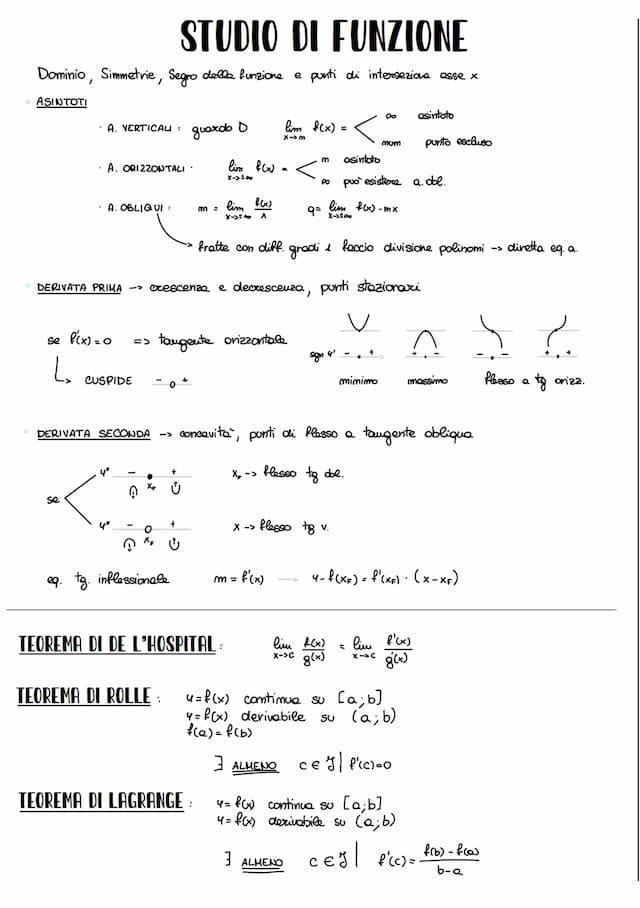 STUDIO DI FUNZIONE
Dominio, Simmetrie, Segno della funzione e punti di intersezione asse x
• ASINTOTI
· A. VERTICALI : guardo D lim x→m f(x) = < ∞ asintoto
num punto escluso
· A. ORIZZONTALI · lim x→±∞ f(x) = < m asintoto
∞ può esistere a. obl.
· A. OBLIQUI : m = lim x→±∞ f(x)/x q = lim x→±∞ f(x) - mx
fratte con diff. gradi 1 faccio divisione polinomi → diretta eq. a.
• DERIVATA PRIMA → crescenza e decrescenza, punti stazionari
se f'(x) = 0 => tangente orizzontale
sgn y' - . + + . - - . - + . +
CUSPIDE - o + minimo massimo flesso a tg orizz.
• DERIVATA SECONDA → concavità, punti di flesso a tangente obliqua
y" - • + xF → flesso tg obl.
xF
se
y" - o + x → flesso tg v.
xF
eq. tg. inflessionale m = f'(x) → y - f(xF) = f'(xF) · (x - xF)
TEOREMA DI DE L'HOSPITAL : lim x→c f(x)/g(x) = lim x→c f'(x)/g'(x)
TEOREMA DI ROLLE : y = f(x) continua su [a;b]
y = f(x) derivabile su (a;b)
f(a) = f(b)
∃ ALMENO c ∈ I | f'(c) = 0
TEOREMA DI LAGRANGE : y = f(x) continua su [a;b]
y = f(x) derivabile su (a;b)
∃ ALMENO c ∈ I | f'(c) = f(b) - f(a) / b - a